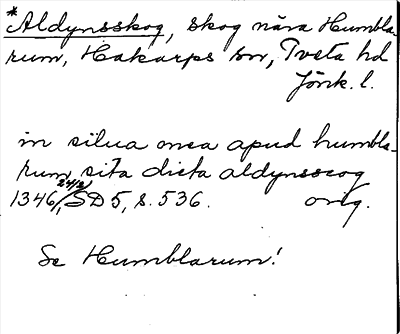 *Aldynsskog, skog nära Humbla-
rum, Hakarps sn, Tveta hd
Jönk. l.
in silua mea apud humbla-
rum sita dicta aldynsscog
1346 24/12, SD 5, s. 536. orig.
Se Humblarum!